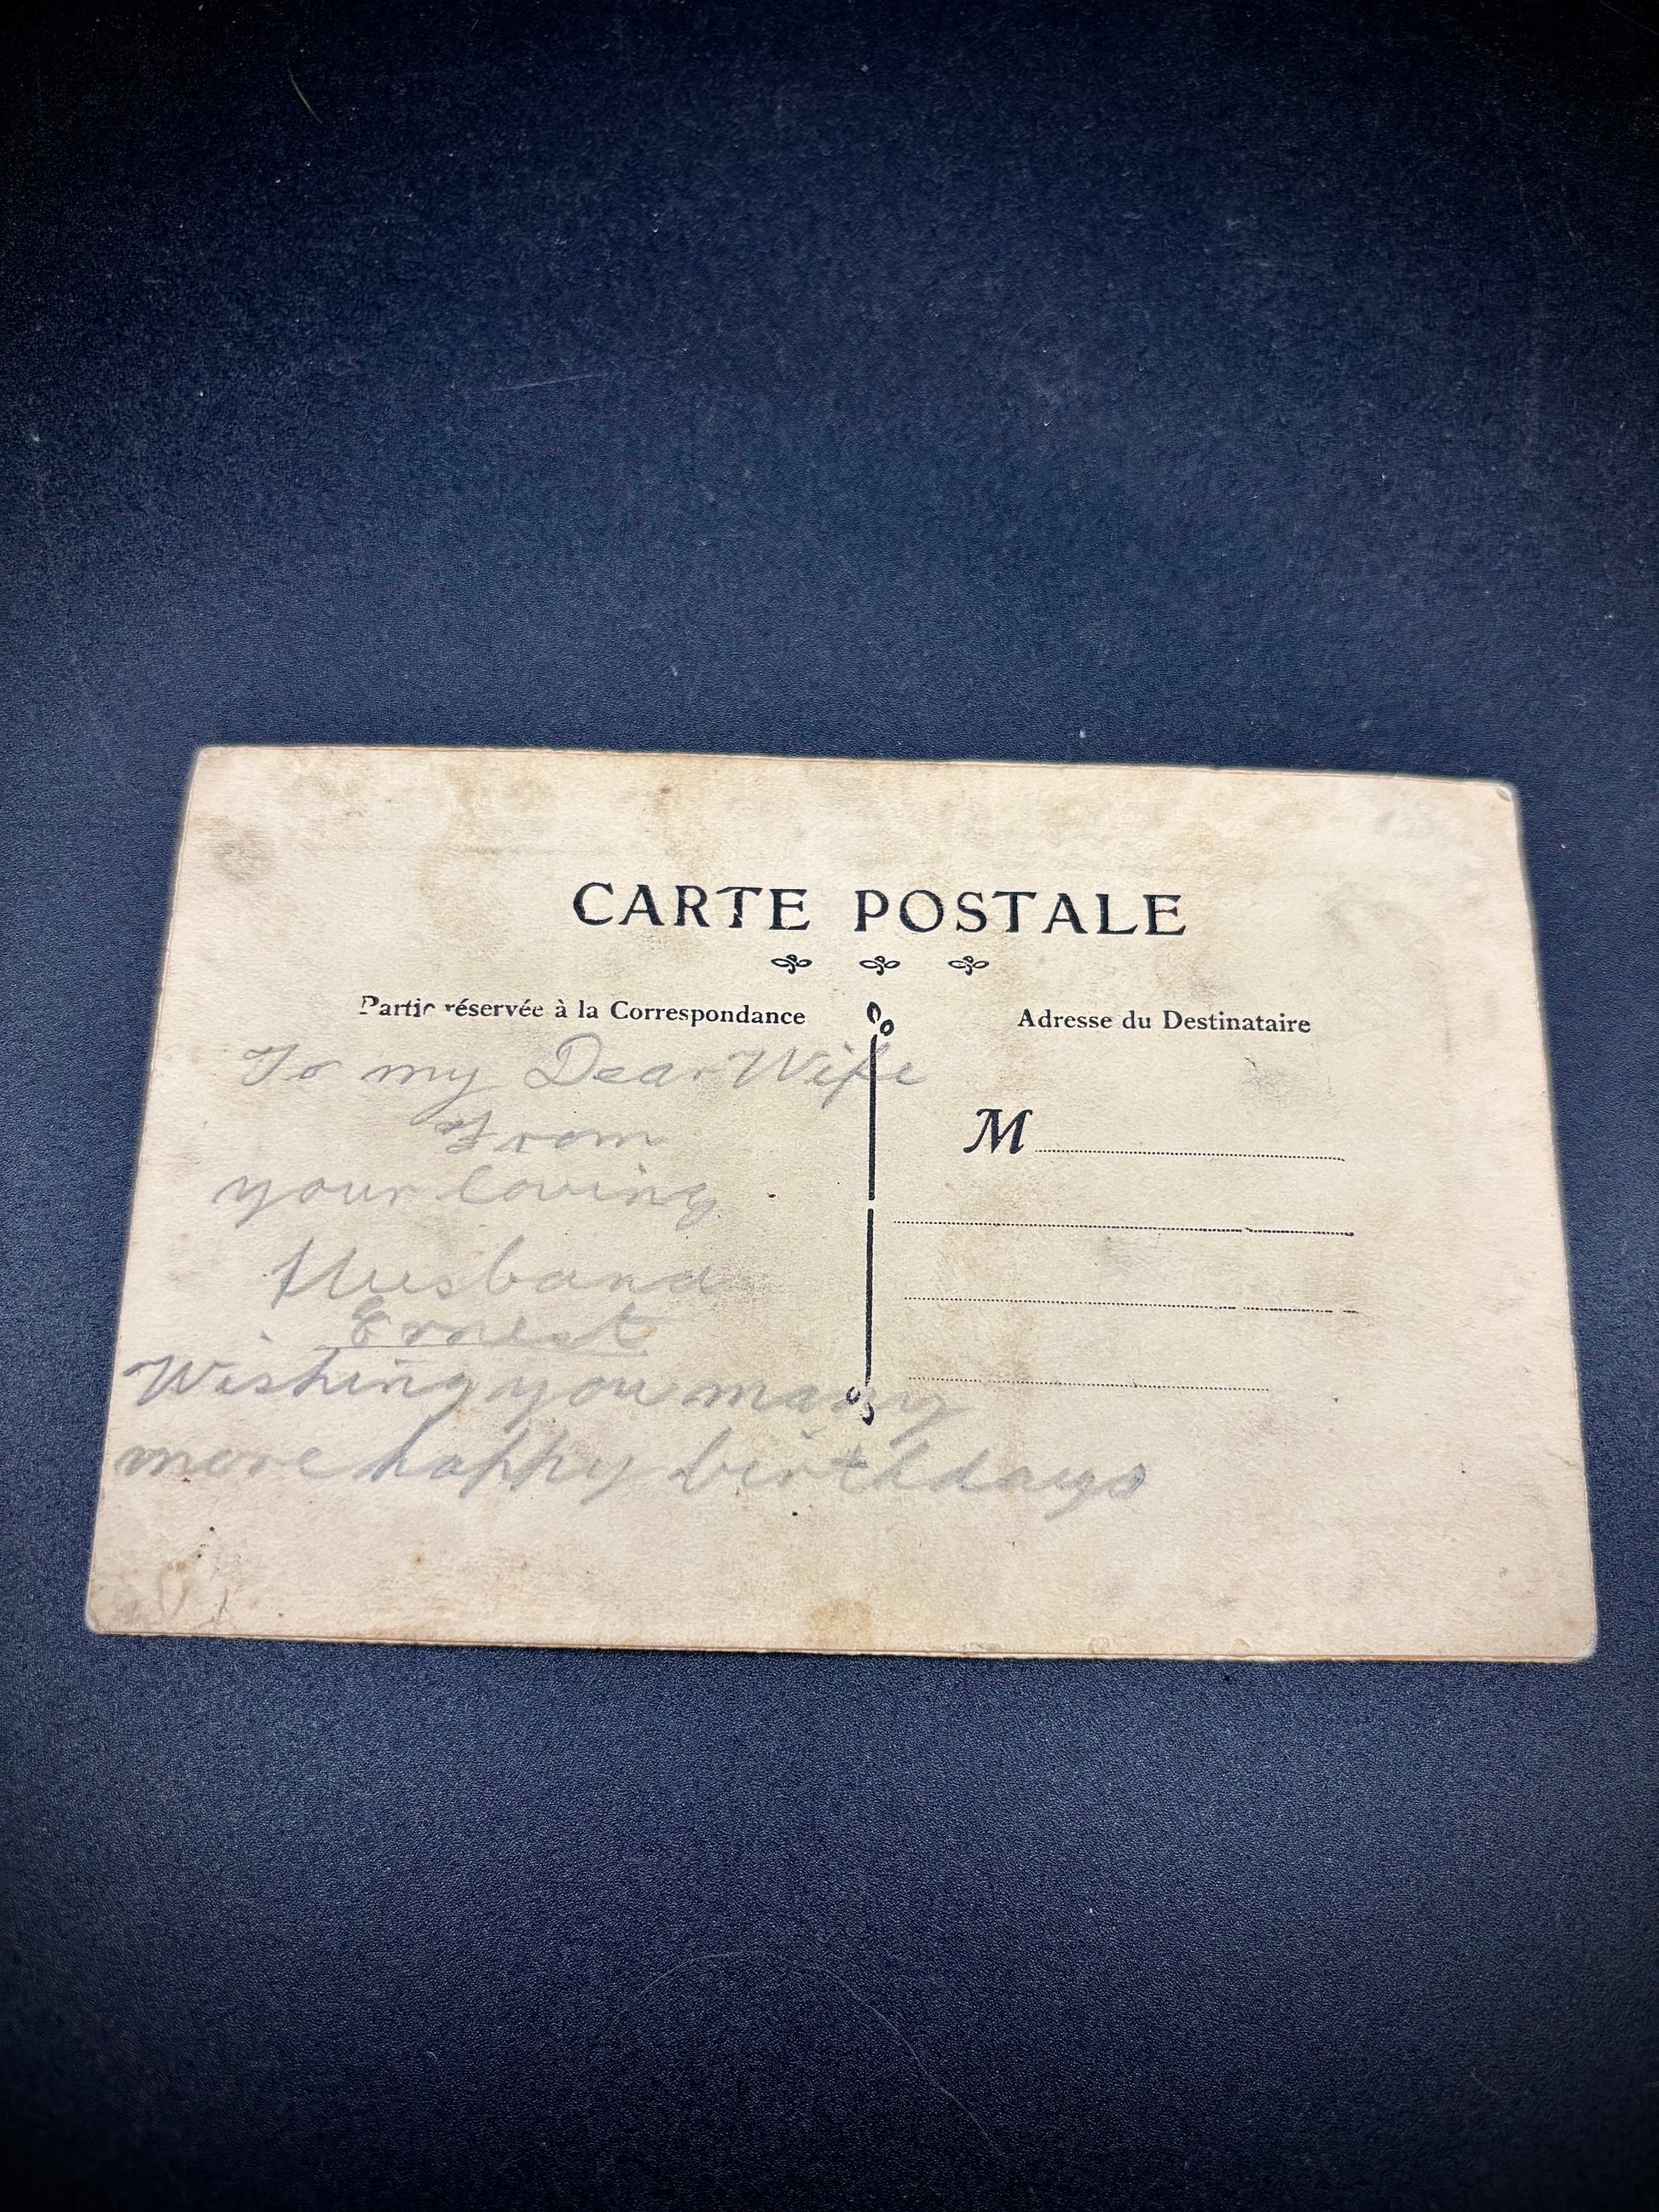 CARTE POSTALE
Partie réservée à la Correspondance
Adresse du Destinataire
To my Dear Wife
From
your loving
Husband
Ernest
Wishing you many
more happy birthdays
M